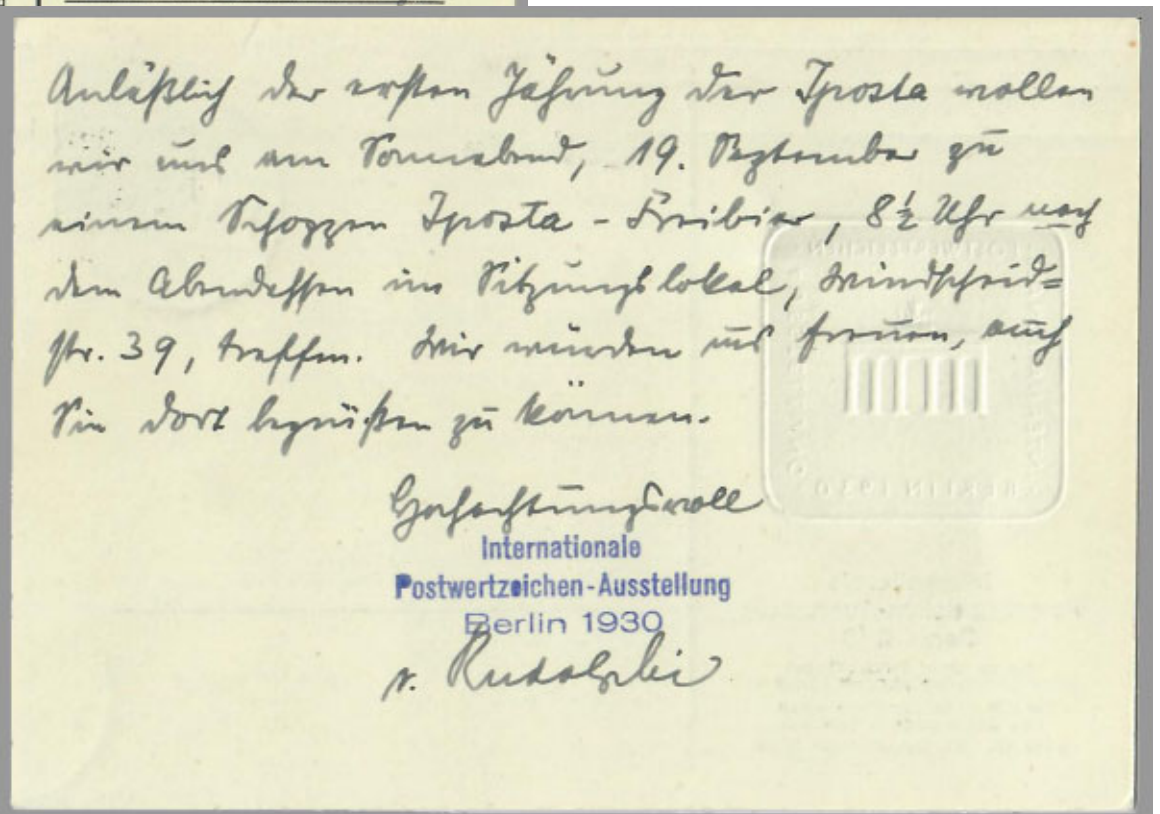 Anläßlich der ersten Jährung der Iposta wollen
wir uns am Sonnabend, 19. September zu
einem Schoppen Iposta-Freibier, 8½ Uhr nach
dem Abendessen im Sitzungslokal, Windscheid=
str. 39, treffen. Wir würden uns freuen, auch
Sie dort begrüßen zu können.
Hochachtungsvoll
Internationale
Postwertzeichen-Ausstellung
Berlin 1930
v. Rudolphi
BERLIN 1930